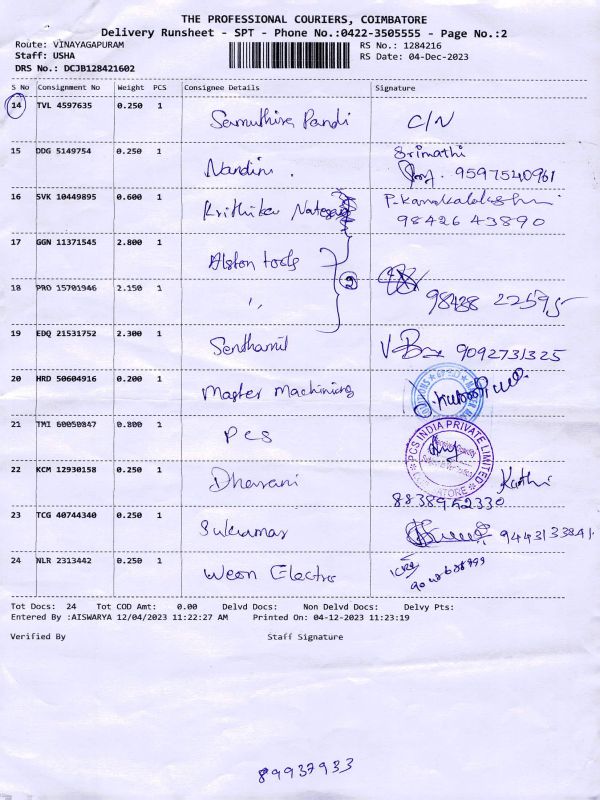 THE PROFESSIONAL COURIERS, COIMBATORE
Delivery Runsheet - SPT - Phone No.:0422-3505555 - Page No.:2
Route: VINAYAGAPURAM RS No.: 1284216
Staff: USHA RS Date: 04-Dec-2023
DRS No.: DCJB128421602
S No Consignment No Weight PCS Consignee Details Signature
14 TVL 4597635 0.250 1 Samuthira Pandi C/N
15 DDG 5149754 0.250 1 Nandini . Srimathi
9597540961
16 SVK 10449895 0.600 1 Krithika P.Kanakalakshmi
98426 43890
17 GGN 11371545 2.800 1 Alston tools
2
18 PRO 15701946 2.150 1 ,, 98438 22595
19 EDQ 21531752 2.300 1 Senthamil 9092731325
20 HRD 50604916 0.200 1 Master Machining
21 TMI 60050847 0.800 1 PCS PCS INDIA PRIVATE LIMITED
COIMBATORE
22 KCM 12930158 0.250 1 Dharani Kathi
8838952330
23 TCG 40744340 0.250 1 Sukumar
24 NLR 2313442 0.250 1 Weon Electro
Tot Docs: 24 Tot COD Amt: 0.00 Delvd Docs: Non Delvd Docs: Delvy Pts:
Entered By :AISWARYA 12/04/2023 11:22:27 AM Printed On: 04-12-2023 11:23:19
Verified By Staff Signature
89937933